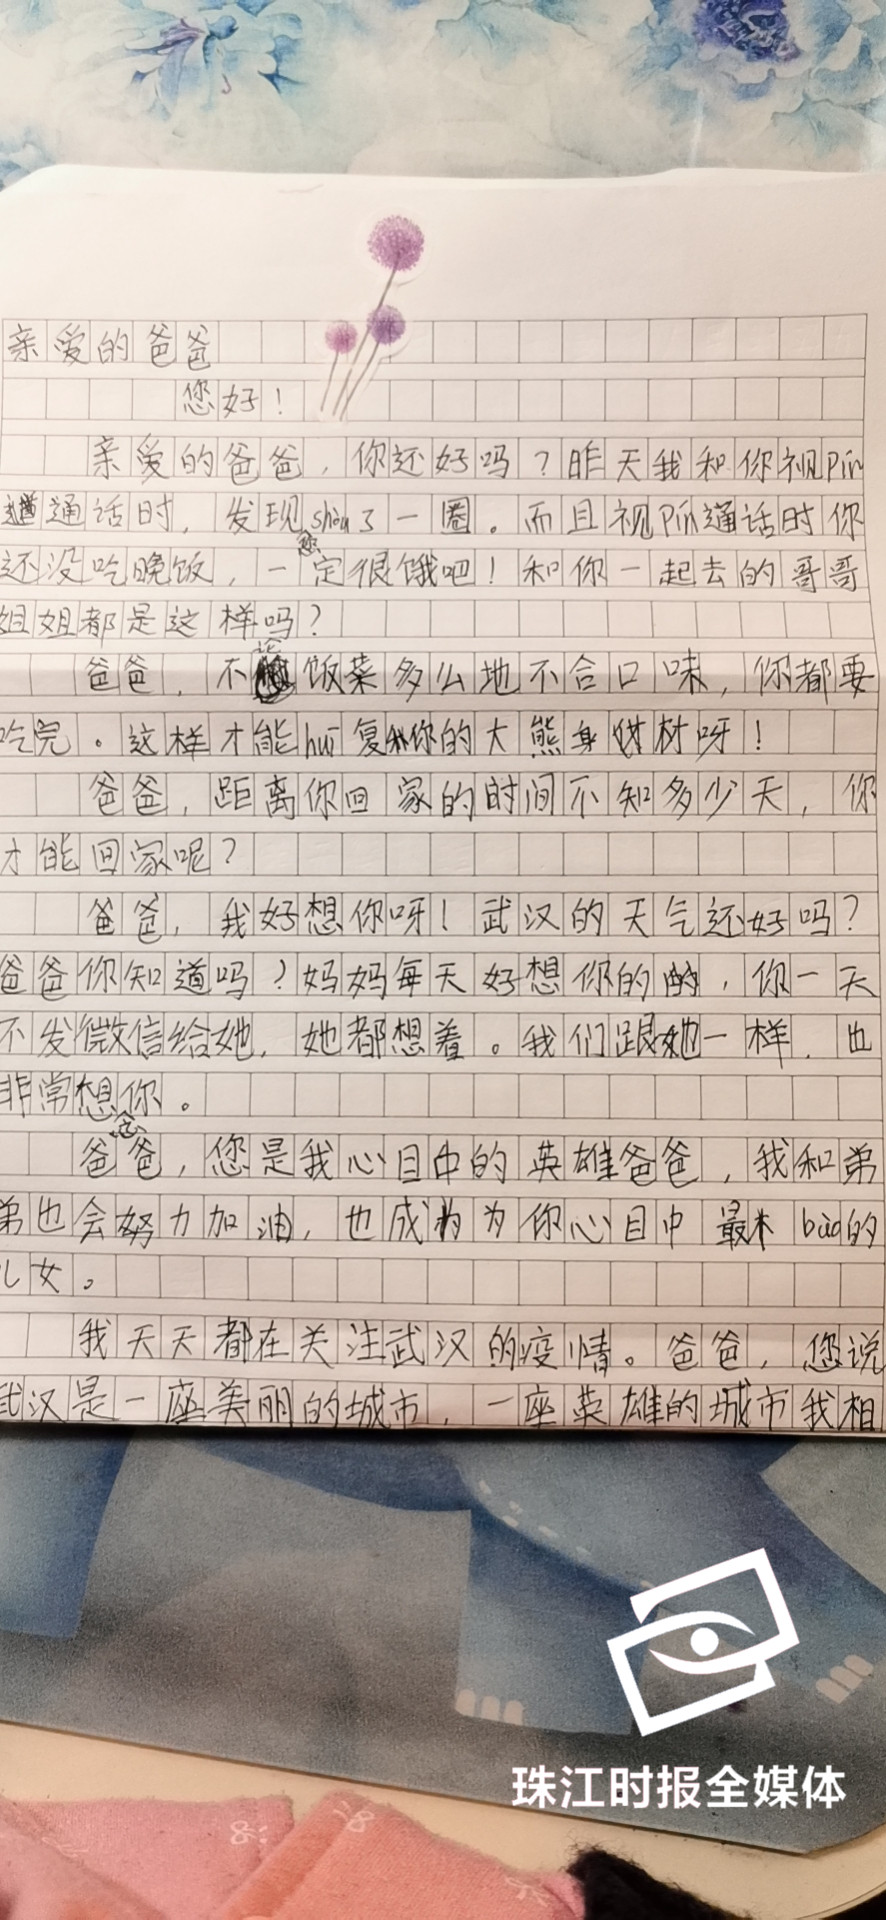 亲爱的爸爸
您好！
亲爱的爸爸，你还好吗？昨天我和你视Pín
通话时，发现您shòu了一圈。而且视Pín通话时你
还没吃晚饭，一定很饿吧！和你一起去的哥哥
姐姐都是这样吗？
爸爸，不论饭菜多么地不合口味，你都要
吃完。这样才能huī复你的大熊身材呀！
爸爸，距离你回家的时间不知多少天，你
才能回家呢？
爸爸，我好想你呀！武汉的天气还好吗？
爸爸你知道吗？妈妈每天好想你的，你一天
不发微信给她，她都想着。我们跟她一样，也
非常想念你。
爸爸，您是我心目中的英雄爸爸，我和弟
弟也会努力加油，也成为你心目中最棒的
儿女。
我天天都在关注武汉的疫情。爸爸，您说
武汉是一座美丽的城市，一座英雄的城市我相
珠江时报全媒体